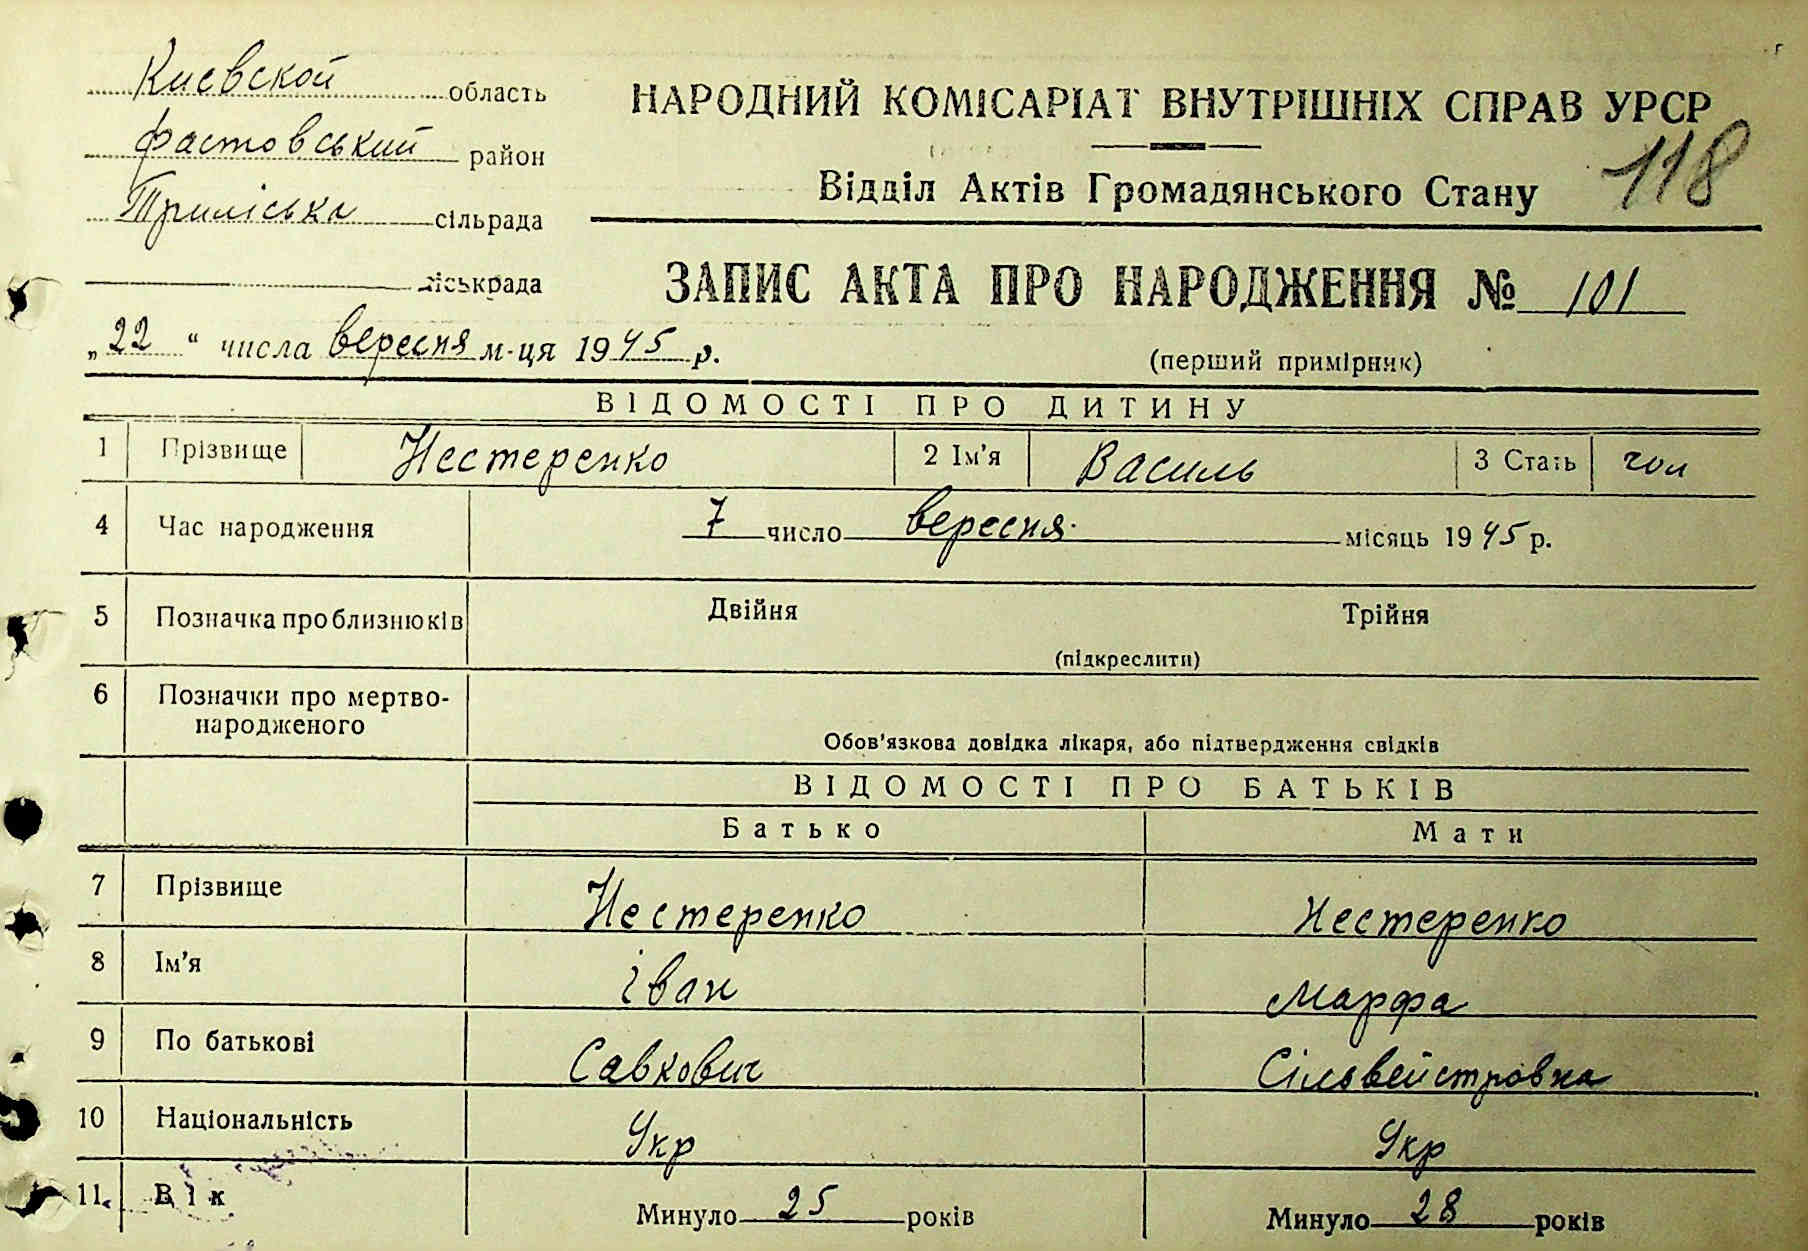 Киевской область
Фастовський район
Триліська сільрада
міськрада
НАРОДНИЙ КОМІСАРІАТ ВНУТРІШНІХ СПРАВ УРСР
Відділ Актів Громадянського Стану
118
ЗАПИС АКТА ПРО НАРОДЖЕННЯ № 101
„22“ числа вересня м-ця 1945 р.
(перший примірник)
ВІДОМОСТІ ПРО ДИТИНУ
1 Прізвище Нестеренко 2 Ім'я Василь 3 Стать чол
4 Час народження 7 число вересня місяць 1945 р.
5 Позначка про близнюків Двійня Трійня
(підкреслити)
6 Позначки про мертво-
народженого
Обов'язкова довідка лікаря, або підтвердження свідків
ВІДОМОСТІ ПРО БАТЬКІВ
Батько Мати
7 Прізвище Нестеренко Нестеренко
8 Ім'я Іван Марфа
9 По батькові Савкович Сільвейстровна
10 Національність Укр Укр
11. Вік Минуло 25 років Минуло 28 років